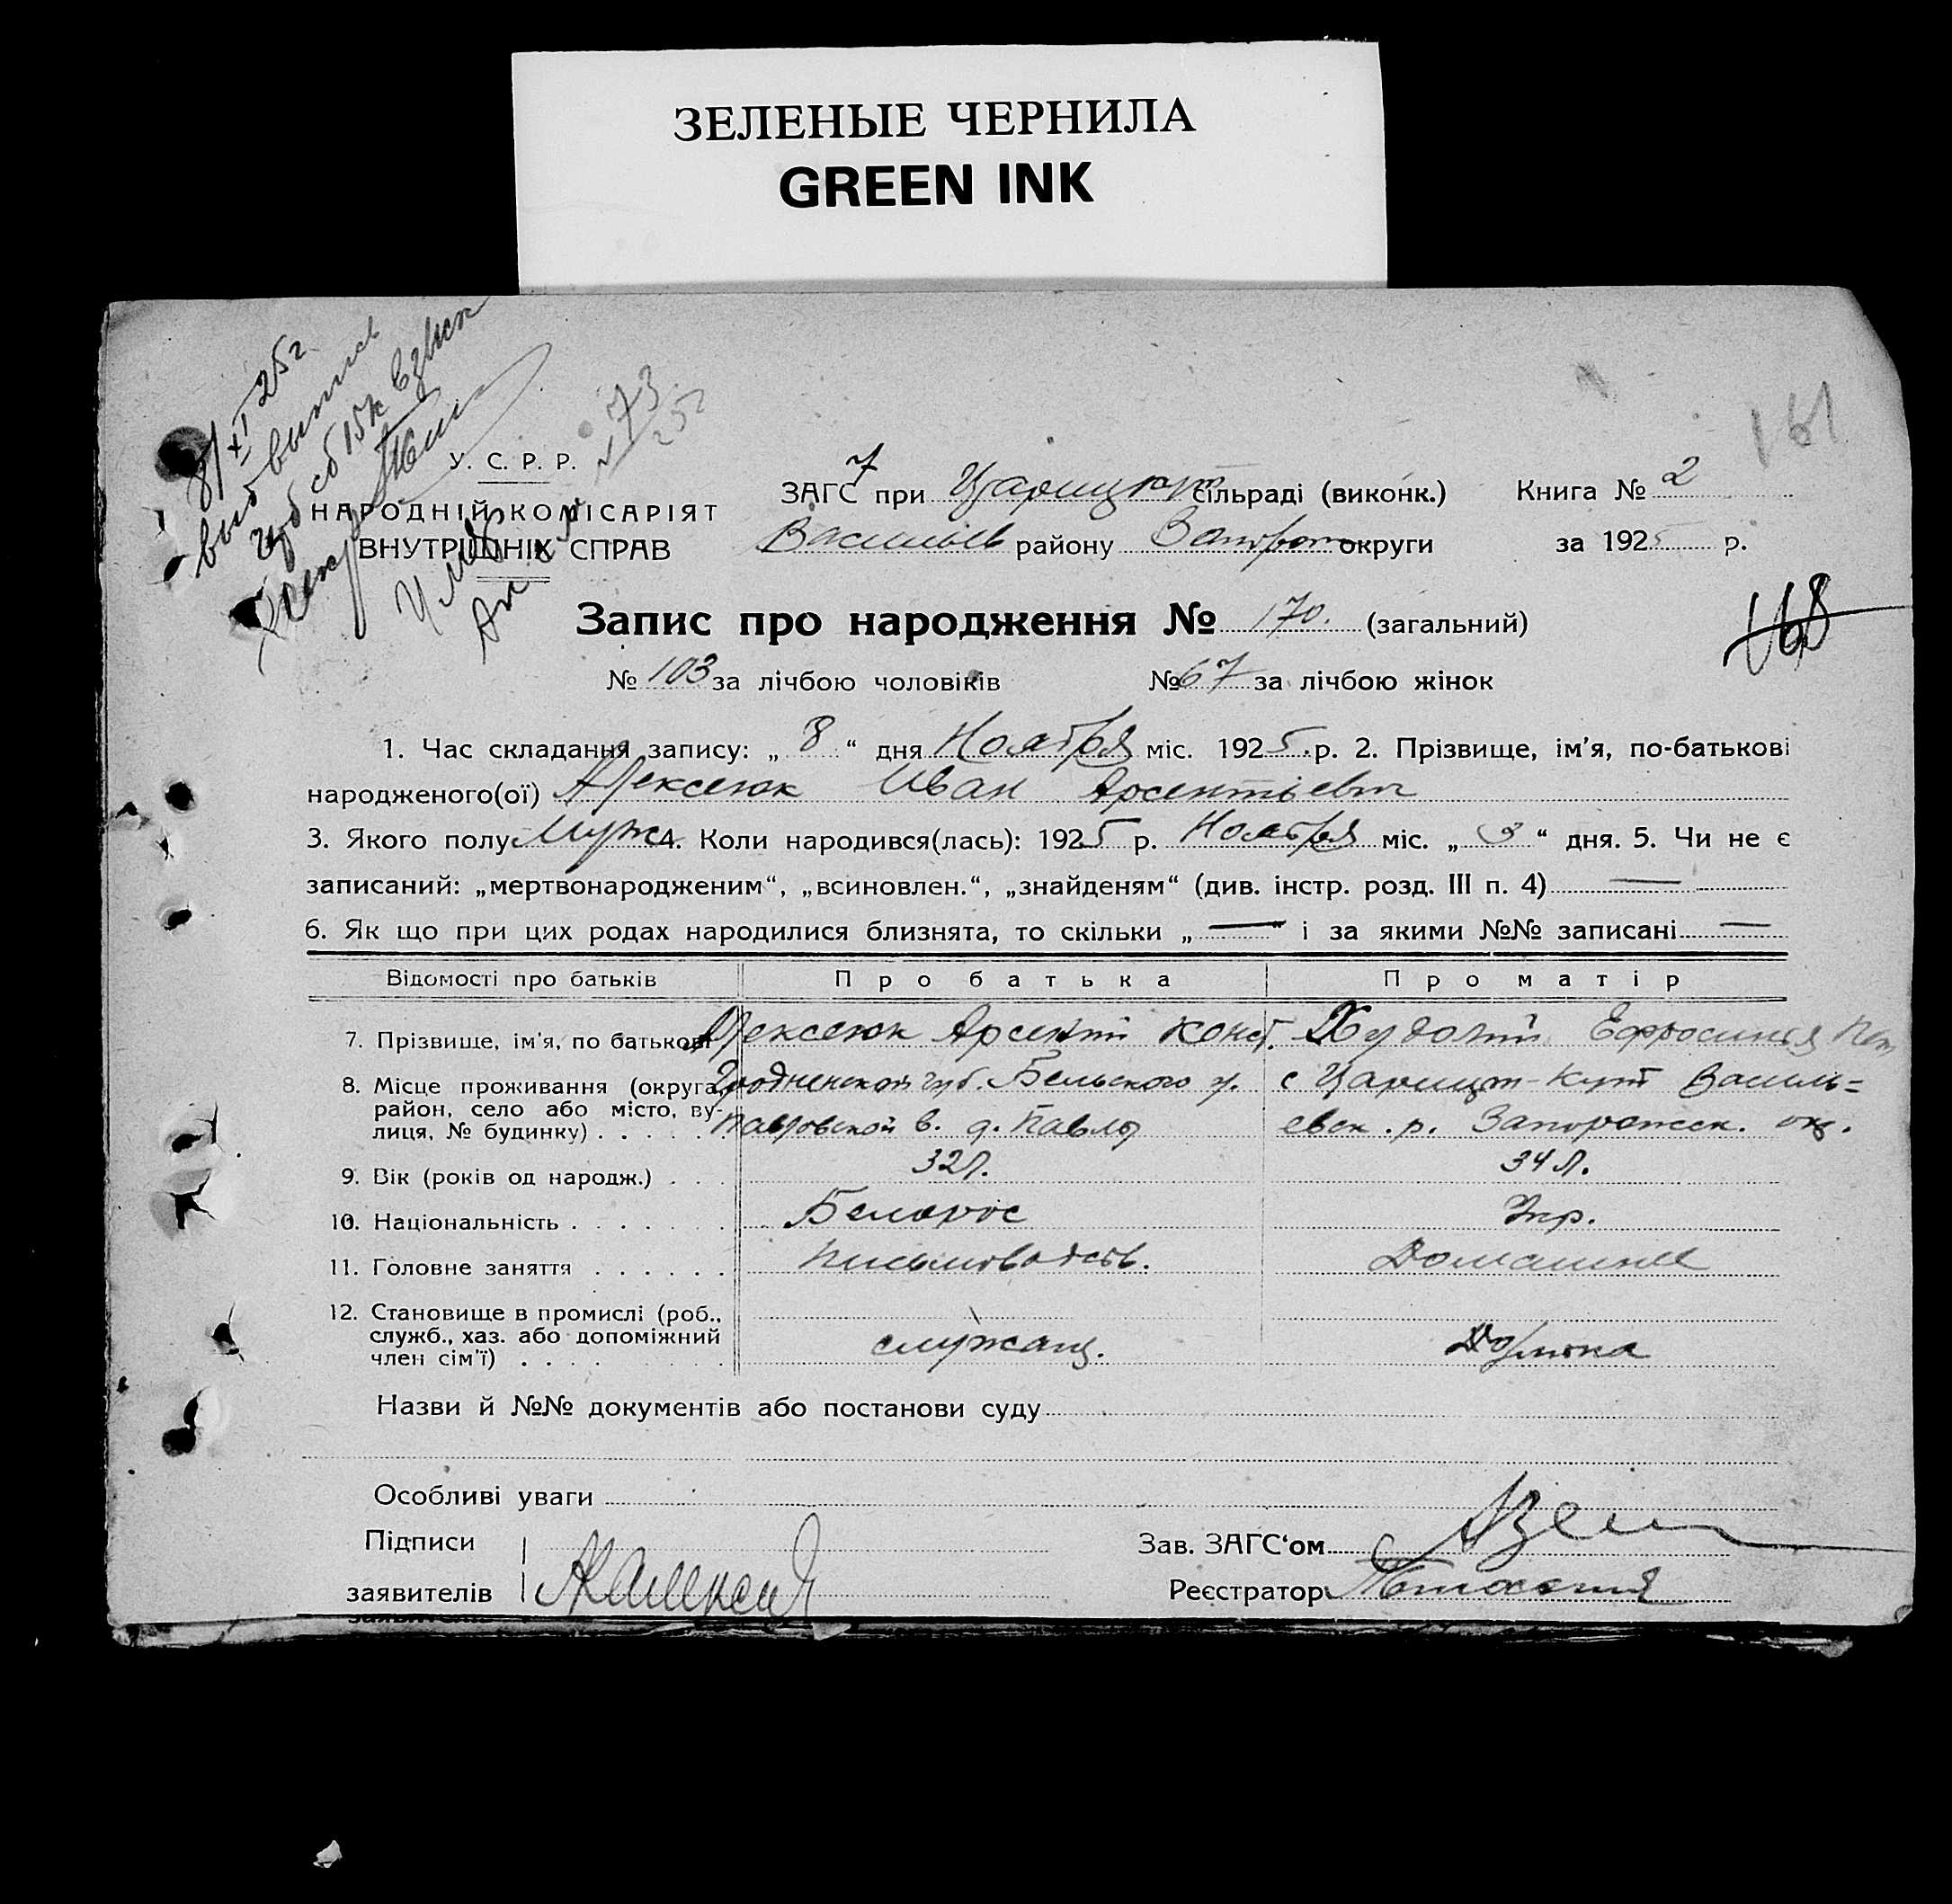 ЗЕЛЕНЫЕ ЧЕРНИЛА
GREEN INK
8/XI 25 г.
У. С. Р. Р.
НАРОДНІЙ КОМІСАРІЯТ
ВНУТРІШНІХ СПРАВ
73
25 г
161
ЗАГС при Царицкут сільраді (виконк.) Книга № 2
Васильев району Запорож округи за 1925 р.
168
Запис про народження № 170. (загальний)
№ 103 за лічбою чоловіків № 67 за лічбою жінок
1. Час складання запису: „ 8 “ дня Ноября міс. 1925 р. 2. Прізвище, ім’я, по-батькові
народженого(ої) Алексеюк Иван Арсентьевич
3. Якого полу Муж. 4. Коли народився(лась): 1925 р. Ноября міс. „ 3 “ дня. 5. Чи не є
записаний: „мертвонародженим“, „всиновлен.“, „знайденям“ (див. інстр. розд. III п. 4) —
6. Як що при цих родах народилися близнята, то скільки „ — “ і за якими №№ записані —
Відомості про батьків Про батька Про матір
7. Прізвище, ім’я, по батькові Алексеюк Арсентй Конст. Худолтй Ефросинья
8. Місце проживання (округа, Гродненской губ. Бельского у. с Царицт-Кут Василь=
район, село або місто, ву- Павловской в. д. Павлы евск. р. Запорожск. окр.
лиця, № будинку)
9. Вік (років од народж.) 32 л. 34 л.
10. Національність Белорос Укр.
11. Головне заняття Письмоводств. Домашнее
12. Становище в промислі (роб.,
служб., хаз. або допоміжний служащ.
член сім’ї)
Назви й №№ документів або постанови суду
Особливі уваги
Підписи
Зав. ЗАГС‘ом
заявителів
Реєстратор